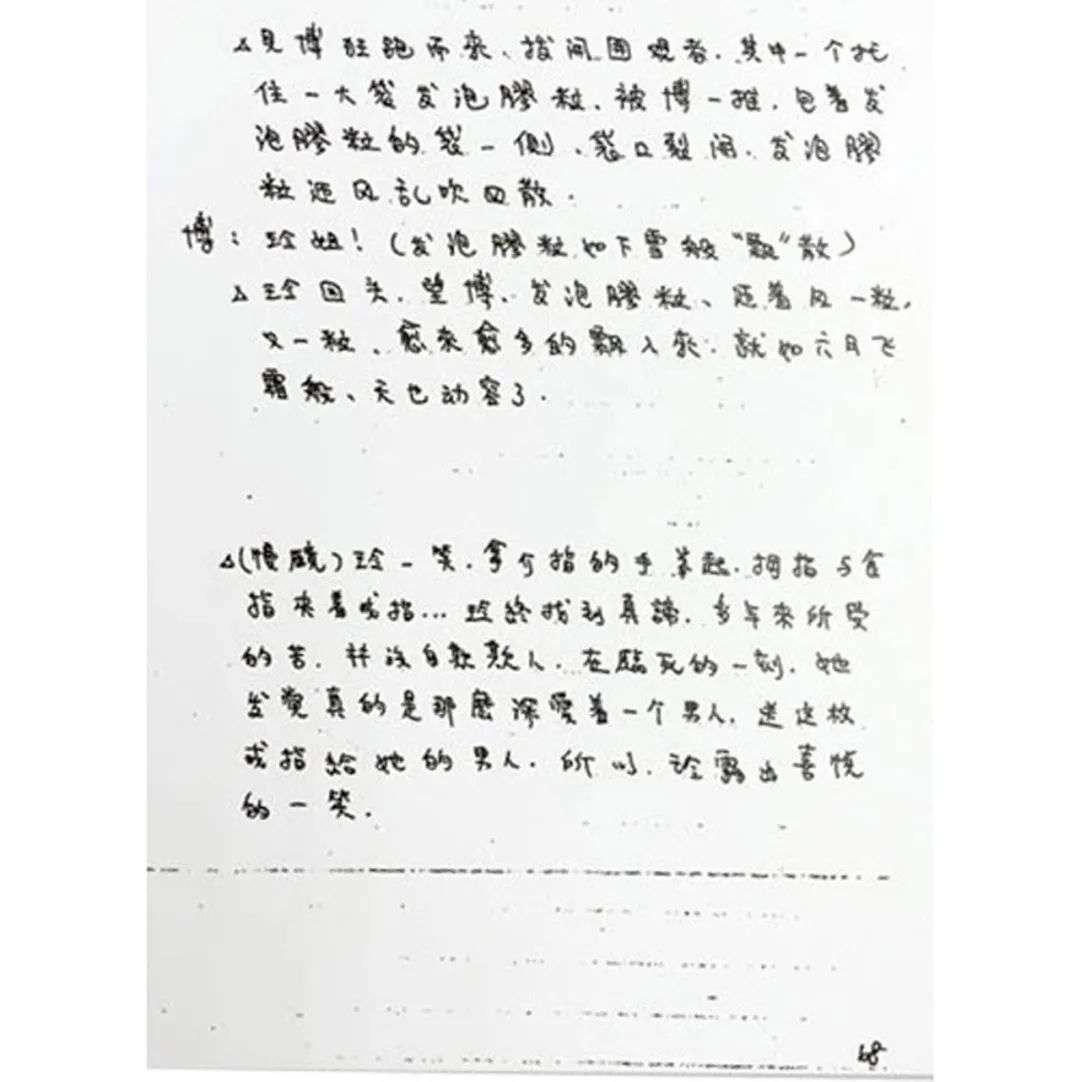 △見博狂跑而來、拔開围观者.其中一个托
住一大袋发泡膠粒、被博一推.包着发
泡膠粒的袋一側、袋口裂開、发泡膠
粒迎风乱吹四散.
博：玲姐！（发泡膠粒如下雪般“飄”散）
△玲回头、望博、发泡膠粒、随着风一粒,
又一粒、愈來愈多的飄入來.就如六月飞
霜般、天也动容了.
△(慢鏡)玲一笑.拿介指的手举起.拇指与食
指夾着戒指...玲終找到真諦.多年來所受
的苦.并没自欺欺人.在臨死的一刻.她
发覺真的是那麼深愛着一个男人.送这枚
戒指給她的男人.所以.玲露出喜悅
的一笑.
68